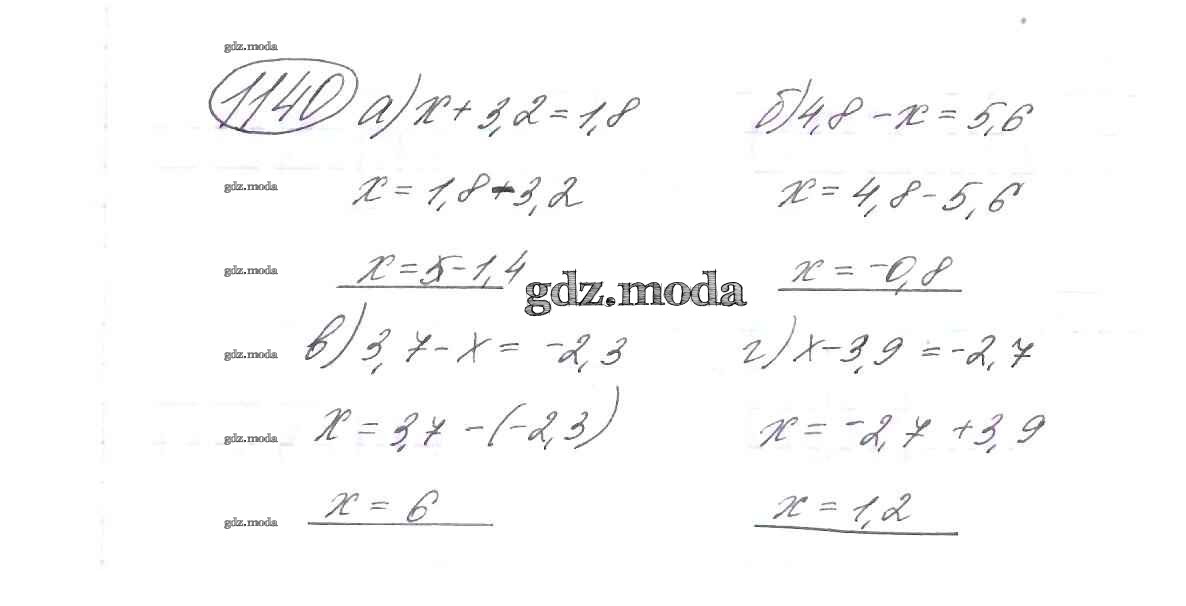 gdz.moda
1140 а) x + 3,2 = 1,8 б) 4,8 - x = 5,6
gdz.moda x = 1,8 - 3,2 x = 4,8 - 5,6
gdz.moda x = 5 - 1,4 x = -0,8
gdz.moda
gdz.moda в) 3,7 - x = -2,3 г) x - 3,9 = -2,7
gdz.moda x = 3,7 - (-2,3) x = -2,7 + 3,9
gdz.moda x = 6 x = 1,2